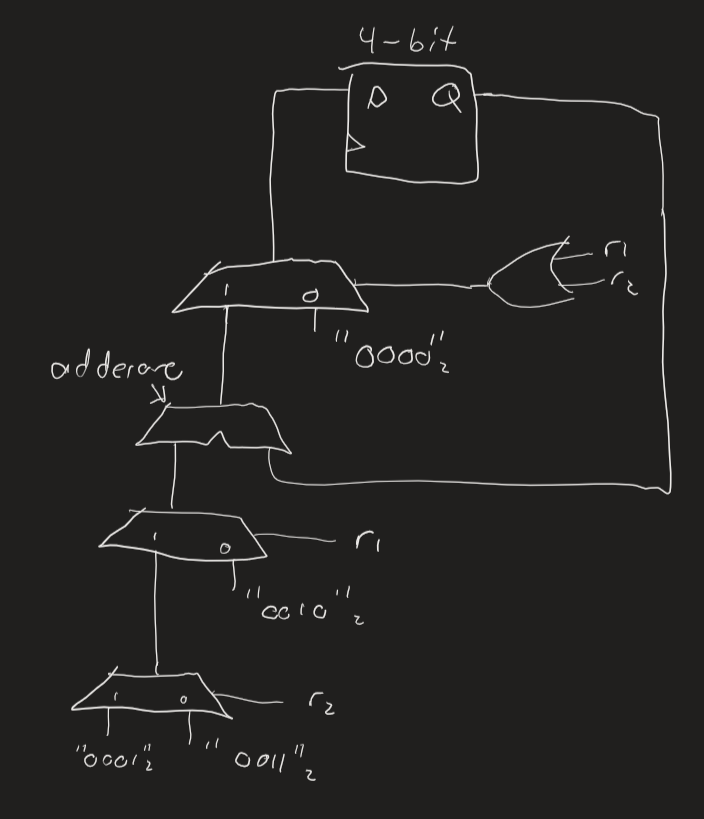 4-bit
D Q
r1
r2
1 0
"0000"2
adderare
1 0
r1
"0010"2
1 0
r2
"0001"2 "0011"2